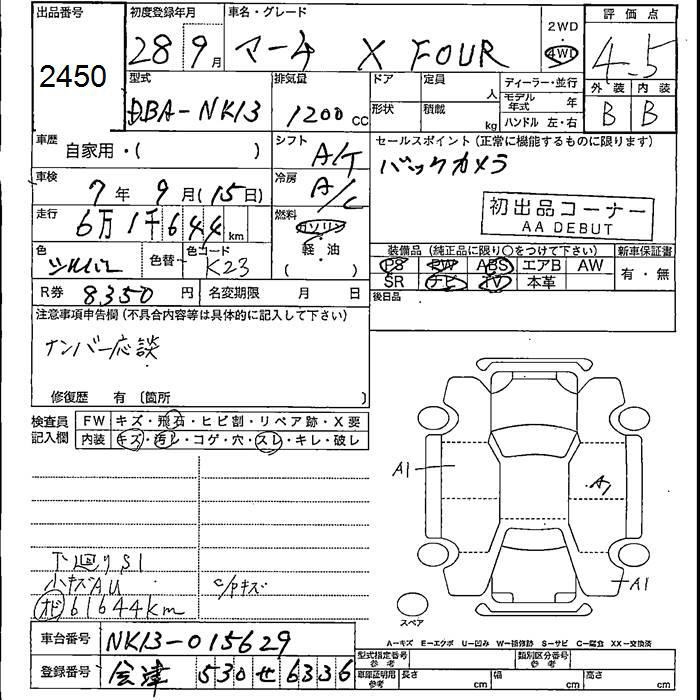 出品番号
2450
初度登録年月
28年 9月
車名・グレード
マーチ X FOUR
2WD
4WD
評価点
4.5
外装 内装
B B
型式
DBA-NK13
排気量
1200 CC
ドア
形状
定員 人
積載 kg
ディーラー・並行
モデル年式 年
ハンドル 左・右
車歴
自家用・( )
シフト
A/T
セールスポイント (正常に機能するものに限ります)
バックカメラ
車検
7年 9月 (15日)
冷房
A/C
初出品コーナー
AA DEBUT
走行
6万1千644 km
燃料
ガソリン
軽・油
( )
色
シルバー
色替
色コード
K23
装備品 (純正品に限り○をつけて下さい)
新車保証書
PS PW ABS エアB AW
SR ナビ TV 本革
有・無
R券 8350円
名変期限 月 日
後日品
注意事項申告欄 (不具合内容等は具体的に記入して下さい)
ナンバー応談
修復歴 有 〔箇所 〕
検査員記入欄
FW キズ・飛石・ヒビ割・リペア跡・X要
内装 キズ・汚レ・コゲ・穴・スレ・キレ・破レ
A1
A1
下廻りS1
小キズAU
C/Pキズ
オド 61644km
スペア
A=キズ E=エクボ U=凹み W=補修跡 S=サビ C=腐食 XX=交換済
車台番号 NK13-015629
登録番号 会津 530 せ 6336
型式指定番号 参考
類別区分番号 参考
車庫証明用 参考
長さ cm 幅 cm 高さ cm